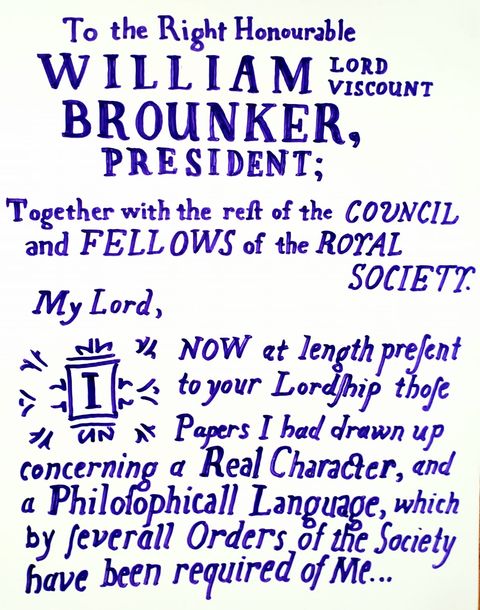 To the Right Honourable
WILLIAM LORD VISCOUNT
BROUNKER,
PRESIDENT;
Together with the reſt of the COUNCIL
and FELLOWS of the ROYAL
SOCIETY.
My Lord,
I NOW at length preſent
to your Lordſhip thoſe
Papers I had drawn up
concerning a Real Character, and
a Philoſophicall Language, which
by ſeverall Orders of the Society
have been required of Me...